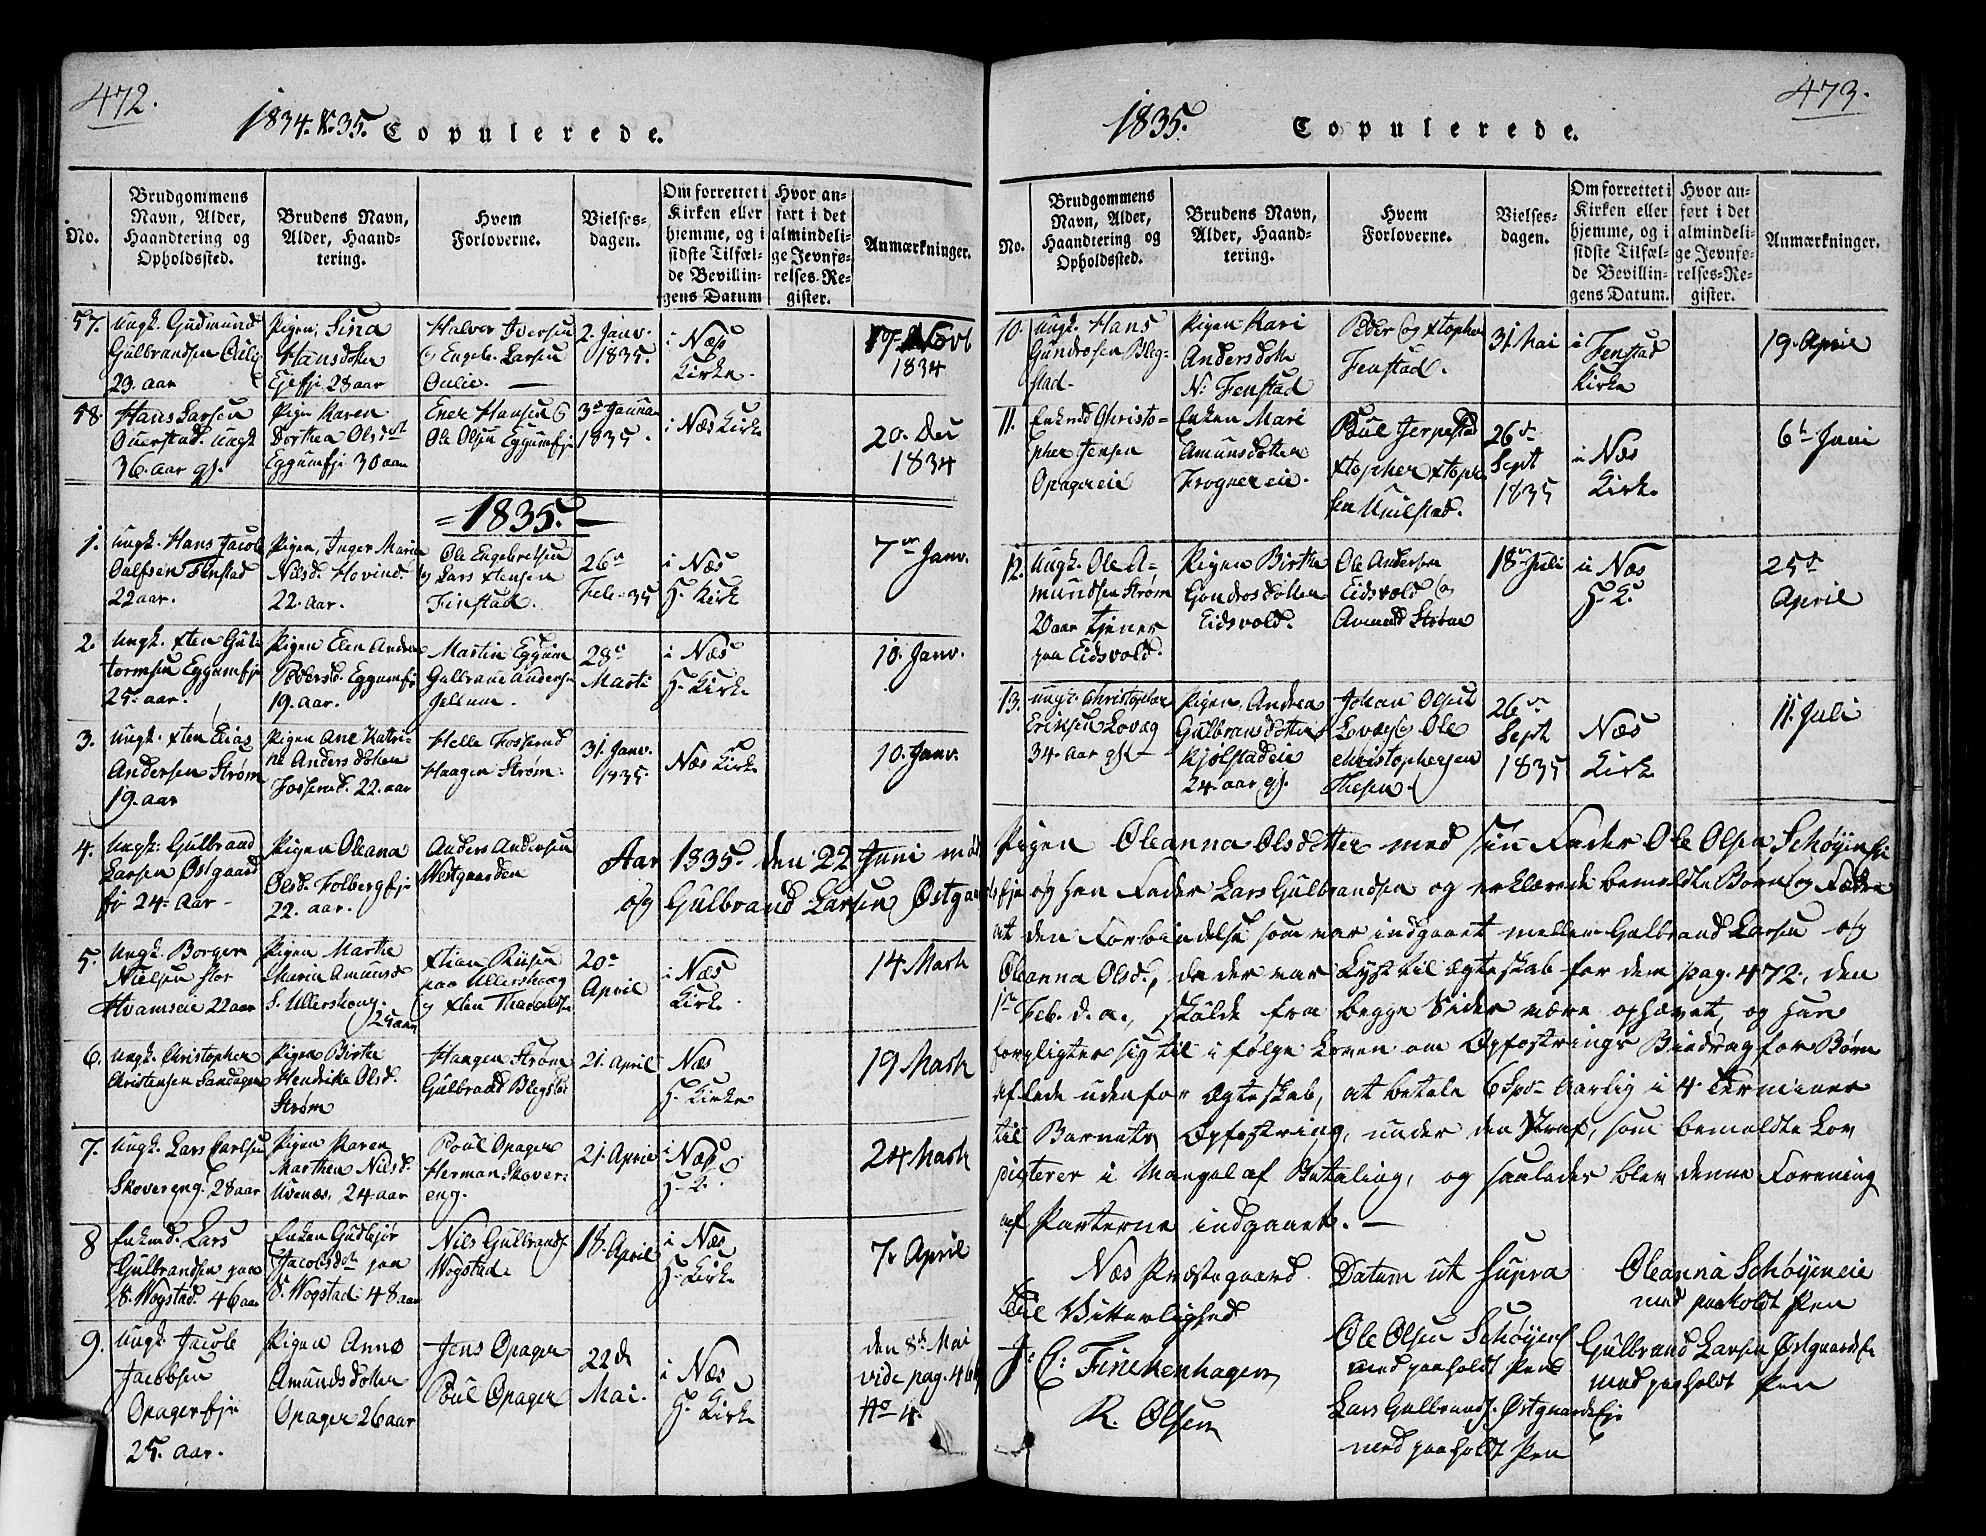 472.
1834. & 35. Copulerede.
No.
Brudgommens
Navn, Alder,
Haandtering og
Opholdssted.
Brudens Navn,
Alder, Haand-
tering.
Hvem
Forloverne.
Vielses-
dagen.
Om forrettet i
Kirken eller
hjemme, og i
sidste Tilfæl-
de Bevillin-
gens Datum
Hvor an-
ført i det
almindeli-
ge Jevnfø-
relses-Re-
gister.
Anmærkninger.
57.
Ungk. Gudmund
Gulbrandsen
23. aar
Pigen, Sina
Hansdotter
28 aar
Halver Iversen
og Engebr. Larsen
Oulie.
2. Janv.
1835.
i Næs
Kirke.
1834
58.
Hans Larsen
Ouerstad. Ungk
36. aar gl.
Pigen Karen
Dorthea Olsdt
Eggumeje 30 aar
Ener Hansen og
Ole Olsen Eggumeje
1835.
i Næs Kirke
20. Dec
1834
1835.
1.
Ungk. Hans Jacob
Finstad
22 aar.
Pigen, Inger Marie
Nilsd. Hovind.
22. aar.
Ole Engebretsen
og Lars
Finstad.
26de
Feb. 35
i Næs
H. Kirk
7de Janv.
2.
Ungk. Xten Gut-
tormsen Eggumeje
25. aar.
Pigen Elen Andrea
Pedersd. Eggumeje
19. aar.
Martin Eggum
Gulbrand Anders.
28de
Marti
i Næs
H. Kirke
10. Janv.
3.
Ungk. Xten Elias
Andersen Strøm
19. aar
Pigen Ane Katri-
ne Andersdotter
Fosserud. 22. aar
Helle Fosserud
Haagen Strøm.
31. Janv.
1835.
Næs Kirke
10. Janv.
4.
Ungk. Gulbrand
Larsen Østgaard
ej 24. Aar
Pigen Oleana
Olsd. Folbergeje
22. aar.
Anders Andersen
Westgaarden
Aar 1835. den 22 Juni mødte
og Gulbrand Larsen Østgaards
5.
Ungk. Borger
Nielsen stor
Hvamseie 22 aar
Pigen Marthe
Marie Amunsd
S. Ullershoug.
25 aar
Xtian
paa Ullershaug
og Xten
20de
April
i Næs
Kirke.
14 Marts
6.
Ungk. Christopher
Christensen Sandagen
Pigen Birthe
Hendrike Olsd.
Strøm
Haagen Strøm
Gulbrand Blegstad
21. April
Næs
H. Kirke
19 Marts
7.
Ungk. Lars Carlsen
Skovereng. 28 aar
Pigen Karen
Marthea Nilsd.
Uvenæs. 24 aar
Poul Opager
Herman Skover-
eng.
21. April
i Næs
H. K.
24 Marts
8
Enkmd. Lars
Gulbrandsen paa
S. Wogstad. 46 aar
Enken Gudbjør
Jacobsdt. paa
S. Wogstad. 48 aar
Nils Gulbrands.
Wogstad.
18. April
i Næs
H. Kirke
7. April
9.
Ungk. Jacob
Jacobsen
Opager eje
25. aar.
Pigen Anne
Amundsdotter
Opager 26 aar
Jens Opager
Poul Opager
22de
Mai.
i Næs
H. Kirke
den 8de Mai
vide pag. 464
No 4.
473.
1835. Copulerede.
No.
Brudgommens
Navn, Alder,
Haandtering og
Opholdssted.
Brudens Navn,
Alder, Haand-
tering.
Hvem
Forloverne.
Vielses-
dagen.
Om forrettet i
Kirken eller
hjemme, og i
sidste Tilfæl-
de Bevillin-
gens Datum.
Hvor an-
ført i det
almindeli-
ge Jevnfø-
relses-Re-
gister.
Anmærkninger.
10.
Ungk. Hans
Gundrosen Bleg-
stad.
Pigen Kari
Andersdotter
N. Fenstad
Peder og Xtopher
Fenstad.
31. Mai
i Fenstad
Kirke
19. April
11.
Enkmd Christo-
pher Jensen
Opager eie
Enken Mari
Amunsdotter
Frogner eie.
Poul Jerpestad
Xtopher Xtopher
sen
26de
Sept
1835
i Næs
Kirke
6te Juni
12.
Ungk. Ole A-
mundsen Strøm
20 aar tjener
paa Eidsvold.
Pigen Birthe
Gundrosdotter
Eidsvold.
Ole Andersen
Eidsvold og
Amund Strøm
18de Juli
i Næs
H. K.
25de
April
13.
Ungk. Christopher
Eriksen Lovag
34. aar gl.
Pigen Andrea
Gulbransdotter
Kjølstadeie
24. aar gl.
Johan Olsen
og Ole
Christophersen
Thesen.
26de
Sept
1835
Næs
Kirke
11. Juli
Pigen Oleanna Olsdotter med sin Fader Ole Olsen Schøyenseje
og hen Fader Lars Gulbrandsen og erklærede bemeldte Børn og Fædre
at den Forbindelse som var indgaaet mellem Gulbrand Larsen og
Oleanna Olsd., da der var Lyst til Ægteskab for dem pag. 472, den
1ste Feb. d. a., skulde fra begge Sider være ophævet, og han
forpligter sig til i følge Loven om Opfostrings Bidrag for Børn
aflede udenfor Ægteskab, at betale 6 Spd. Aarlig i 4 Terminer
til Barnets Opfostring, under den Straf, som bemeldte Lov
dicterer i Mangel af Betaling, og saaledes blev denne Forening
af Parterne indgaaet.
Næs Præstegaard Datum ut supra
Oleanna Schøyeneie
med paaholdt Pen
Til Vitterlighed
Ole Olsen Schøyens
med paaholdt Pen
Gulbrand Larsen Østgaardseje
med paaholdt Pen
J. C. Finckenhagen
R. Olsen
Lars Gulbrands. Østgaardseje
med paaholdt Pen